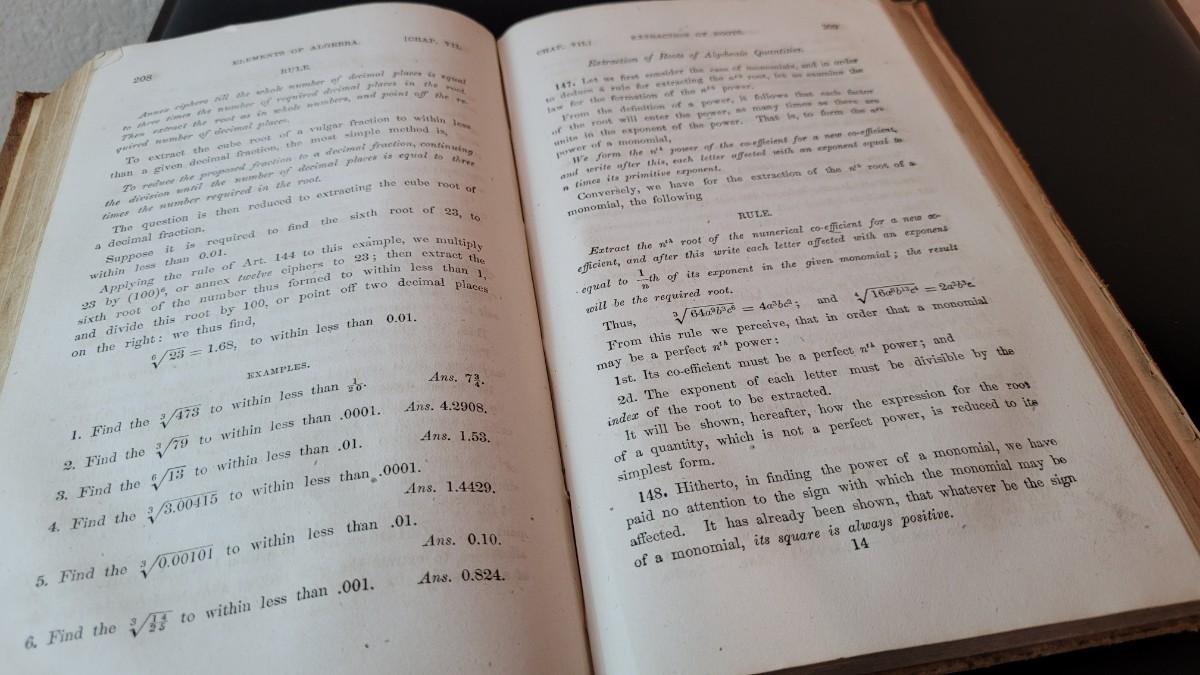 208
ELEMENTS OF ALGEBRA.
[CHAP. VII.
RULE.
Annex ciphers till the whole number of decimal places is equal
to three times the number of required decimal places in the root.
Then extract the root as in whole numbers, and point off the re-
quired number of decimal places.
To extract the cube root of a vulgar fraction to within less
than a given decimal fraction, the most simple method is,
To reduce the proposed fraction to a decimal fraction, continuing
the division until the number of decimal places is equal to three
times the number required in the root.
The question is then reduced to extracting the cube root of
a decimal fraction.
Suppose it is required to find the sixth root of 23, to
within less than 0.01.
Applying the rule of Art. 144 to this example, we multiply
23 by (100)⁶, or annex twelve ciphers to 23; then extract the
sixth root of the number thus formed to within less than 1,
and divide this root by 100, or point off two decimal places
on the right: we thus find,
⁶√23 = 1.68, to within less than 0.01.
EXAMPLES.
1. Find the ³√473 to within less than 1/20. Ans. 7¾.
2. Find the ³√79 to within less than .0001. Ans. 4.2908.
3. Find the ⁶√13 to within less than .01. Ans. 1.53.
4. Find the ³√3.00415 to within less than .0001.
Ans. 1.4429.
5. Find the ³√0.00101 to within less than .01.
Ans. 0.10.
6. Find the ³√14/25 to within less than .001. Ans. 0.824.
CHAP. VII.]
EXTRACTION OF ROOTS.
209
Extraction of Roots of Algebraic Quantities.
147. Let us first consider the case of monomials, and in order
to deduce a rule for extracting the nᵗʰ root, let us examine the
law for the formation of the nᵗʰ power.
From the definition of a power, it follows that each factor
of the root will enter the power, as many times as there are
units in the exponent of the power. That is, to form the nᵗʰ
power of a monomial,
We form the nᵗʰ power of the co-efficient for a new co-efficient,
and write after this, each letter affected with an exponent equal to
n times its primitive exponent.
Conversely, we have for the extraction of the nᵗʰ root of a
monomial, the following
RULE.
Extract the nᵗʰ root of the numerical co-efficient for a new co-
efficient, and after this write each letter affected with an exponent
equal to 1/n th of its exponent in the given monomial; the result
will be the required root.
Thus, ³√64a⁹b³c⁶ = 4a³bc²; and ⁴√16a⁸b¹²c⁴ = 2a²b³c.
From this rule we perceive, that in order that a monomial
may be a perfect nᵗʰ power:
1st. Its co-efficient must be a perfect nᵗʰ power; and
2d. The exponent of each letter must be divisible by the
index of the root to be extracted.
It will be shown, hereafter, how the expression for the root
of a quantity, which is not a perfect power, is reduced to its
simplest form.
148. Hitherto, in finding the power of a monomial, we have
paid no attention to the sign with which the monomial may be
affected. It has already been shown, that whatever be the sign
of a monomial, its square is always positive.
14